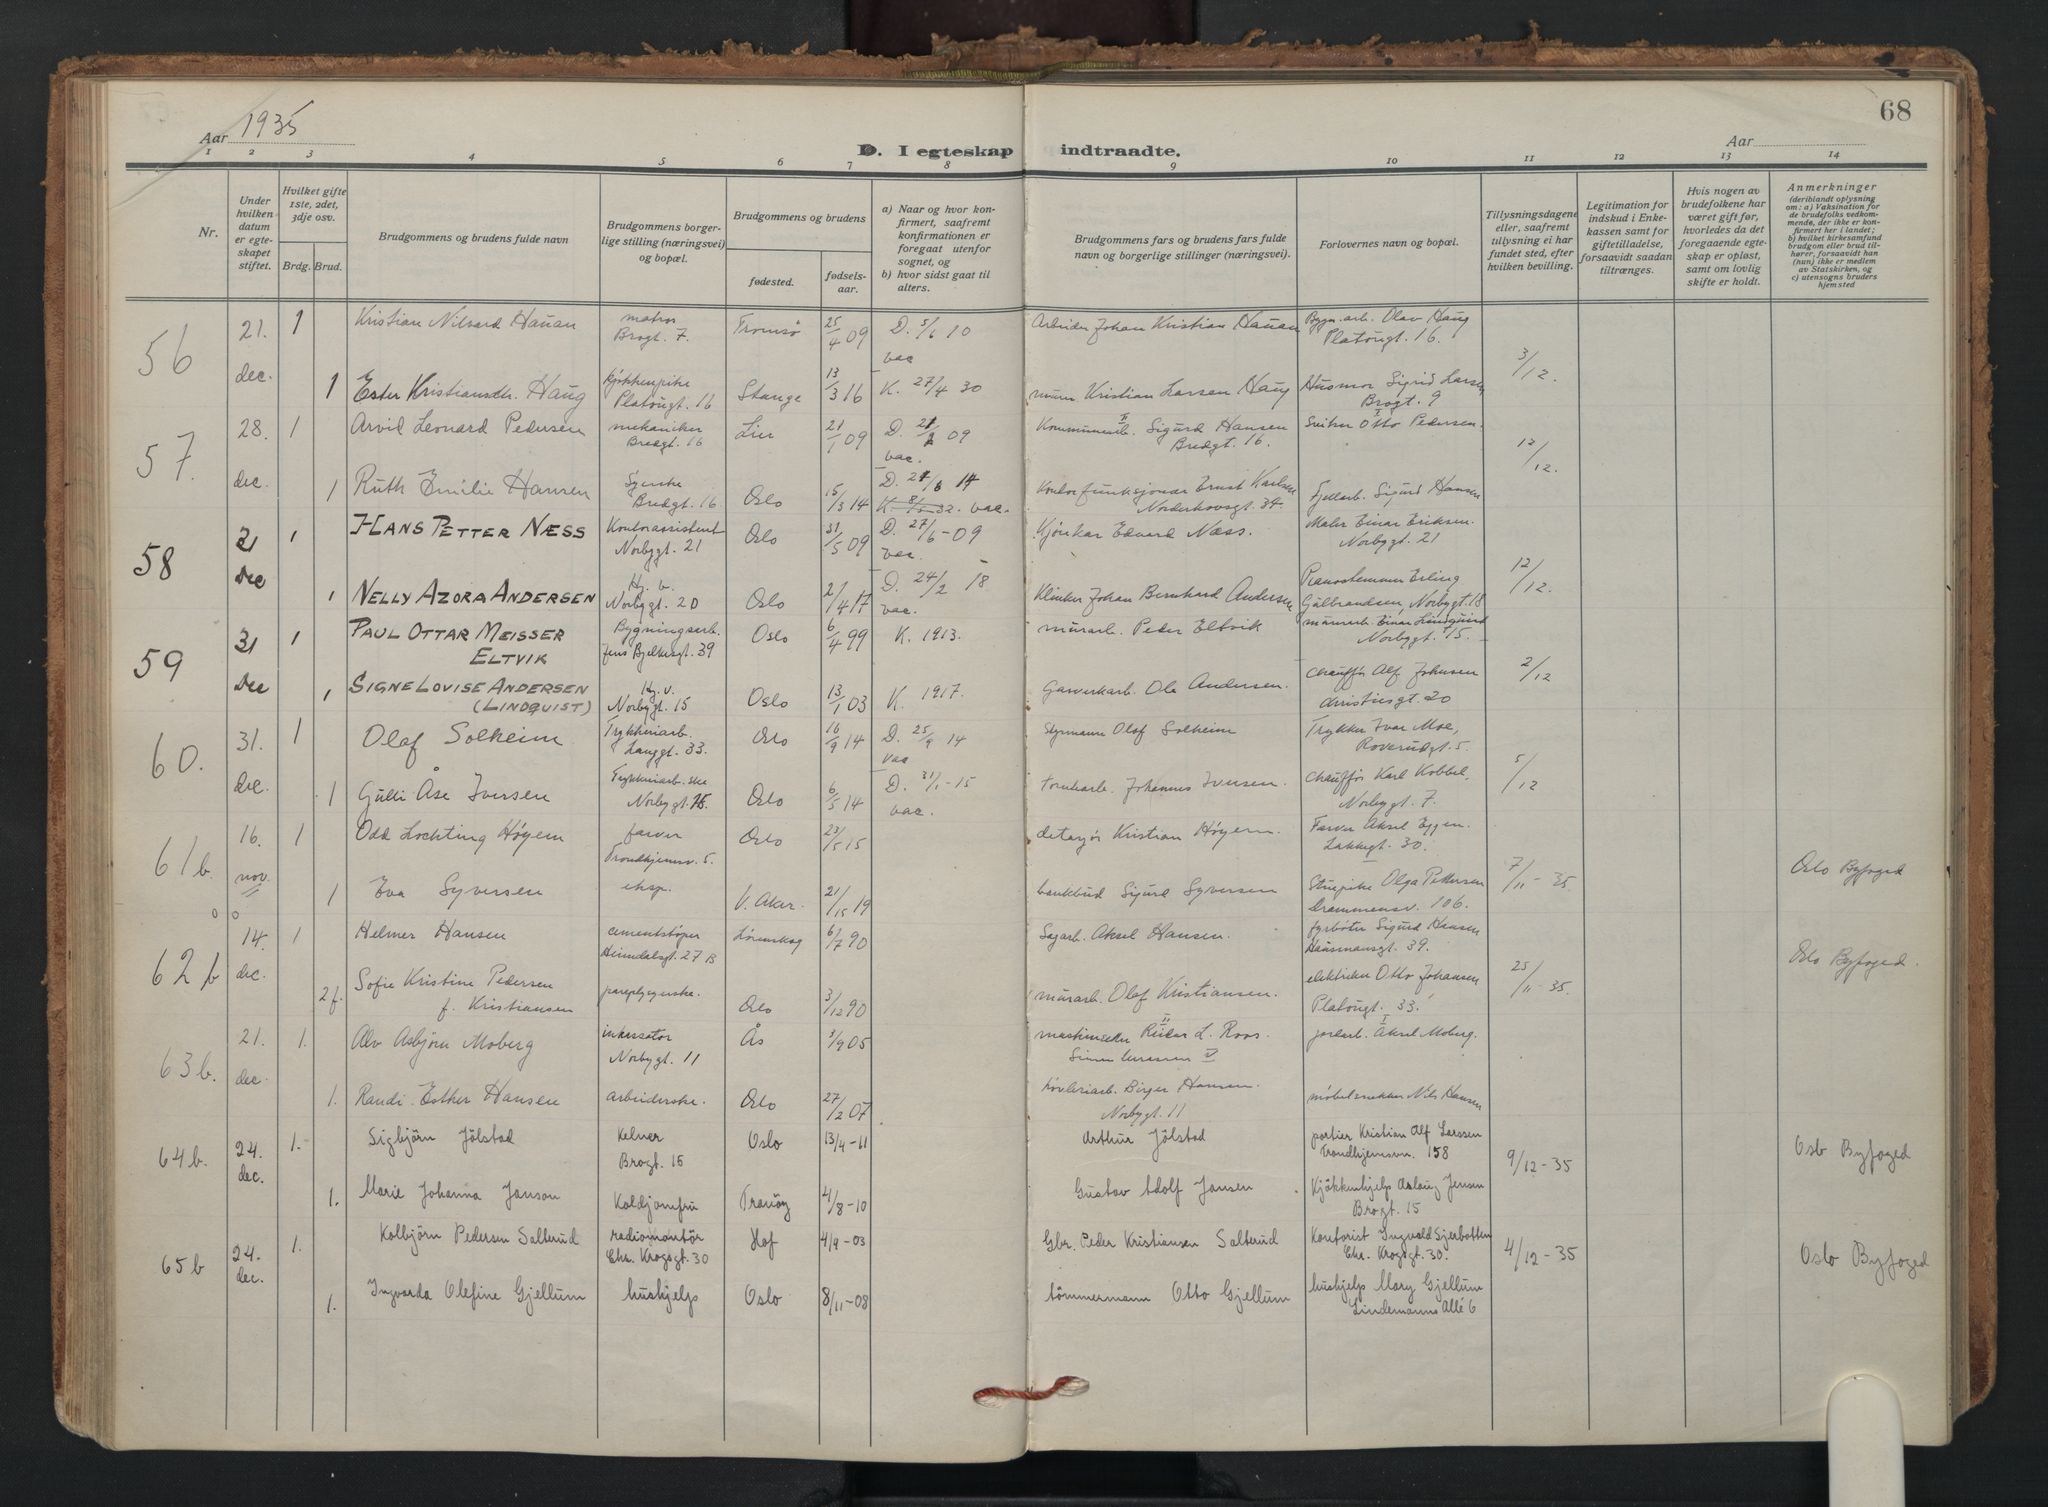 68
Aar 1935
Aar
D. I egteskap indtraadte.
1 2 3 4 5 6 7 8 9 10 11 12 13 14
Nr.
Under hvilken datum er egteskapet stiftet.
Hvilket gifte 1ste, 2det, 3dje osv.
Brdg. Brud.
Brudgommens og brudens fulde navn
Brudgommens borgerlige stilling (næringsvei) og bopæl.
Brudgommens og brudens
fødested.
fødselsaar.
a) Naar og hvor konfirmert, saafremt konfirmationen er foregaat utenfor sognet, og
b) hvor sidst gaat til alters.
Brudgommens fars og brudens fars fulde navn og borgerlige stillinger (næringsvei).
Forlovernes navn og bopæl.
Tillysningsdagene eller, saafremt tillysning ei har fundet sted, efter hvilken bevilling.
Legitimation for indskud i Enkekassen samt for giftetilladelse, forsaavidt saadan tiltrænges.
Hvis nogen av brudefolkene har været gift før, hvorledes da det foregaaende egteskap er opløst, samt om lovlig skifte er holdt.
Anmerkninger
(deriblandt oplysning om: a) Vaksination for de brudefolks vedkommende, der ikke er konfirmert her i landet;
b) hvilket kirkesamfund brudgom eller brud tilhører, forsaavidt han (hun) ikke er medlem av Statskirken, og
c) utensogns bruders hjemsted
56 21. dec. 1 Kristian Nilvard Hauan matros Brogt. 7. Tromsø 25/4 09 D. 5/6 10 vac Arbeider Johan Kristian Hauan Bygn.arb. Olav Haug Platougt. 16. 3/12.
1 Ester Kristiansdtr. Haug kjøkkenpike Platougt. 16 Stange 13/3 16 K. 27/4 30 murer Kristian Larsen Haug Husmor Sigrid Larsen Brogt. 9
57. 28. dec. 1 Arvil Leonard Pedersen mekaniker Bredgt. 16 Lier 21/1 09 D. 09 vac. Kommunearb. II Sigurd Hansen Bredgt. 16. I Otto Pedersen. 12/12.
1 Ruth Emilie Hansen Syerske Bredgt. 16 Oslo 15/3 14 D. 21/6 14 K. 8/5 32. vac. Kontorfunksjonær Ernst Karlsen Norderhovsgt. 34 Fjellarb. Sigurd Hansen
58 21 Dec 1 HANS PETTER NÆSS Kontorassistent Norbygt. 21 Oslo 31/5 09 D. 27/6-09 vac. Kjørekar Edvard Næss. Maler Einar Eriksen. Norbygt. 21 12/12.
1 NELLY AZORA ANDERSEN Hj. v. Norbygt. 20 Oslo 2/4 17 D. 24/2 18 vac. Klinker Johan Bernhard Andersen Pianostemmer Erling Gulbrandsen, Norbygt. 18
59 31 Dec 1 PAUL OTTAR MEISSER ELTVIK Bygningsarb. Jens Bjelkesgt. 39 Oslo 6/4 99 K. 1913. murarb. Peder Eltvik murarb. Einar Lindquist Norbygt. 15. 2/12
1 SIGNE LOVISE ANDERSEN (LINDQUIST) Hj. v. Norbygt. 15 Oslo 13/1 03 K. 1917. Garverarb. Ole Andersen. Chauffør Alf Johnsen Christiesgt. 20
60. 31. dec. 1 Olaf Solheim Trykkeriarb. Langgt. 33. Oslo 16/9 14 D. 25/9 14 vac Styrmann Olaf Solheim Trykker Ivar Moe, Roverudgt. 5. 5/12
1 Gulli Åse Iversen Trykkeriarb.ske Norbygt. 15. Oslo 6/5 14 D. 31/1-15 vac. tomtearb. Johannes Iversen. Chauffør Karl Kobbel, Norbygt. 7.
61 b. 16. nov. 1 Odd Lochting Høyem farver Trondhjemsv. 5. Oslo 23/5 15 detaljør Kristian Høyem. Farver Aksel Eggen. Lakkegt. 30. 7/11-35. Oslo Byfoged
1 Eva Syversen eksp. V. Aker. 19 bankbud Sigurd Syversen Stuepike Olga Pettersen Drammensv. 106.
62 b 14. dec. 1 Helmer Hansen cementstøper Heimdalsgt. 27 B Lørenskog 6/7 90 Sagarb. Aksel Hansen. fyrbøter Sigurd Hansen Hausmansgt. 39. 25/11-35. Oslo Byfoged.
2 f. Sofie Kristine Pedersen f. Kristiansen Oslo 3/12 90 murarb. Olaf Kristiansen. elektriker Otto Johansen Platougt. 33.
63 b. 21. dec. 1. Alv Asbjørn Moberg inkassator Norbygt. 11 Ås /9 05 II L. Roos. I jordarb. Aksel Moberg.
1. Randi Esther Hansen arbeiderske. Oslo 27/2 07 Høvleriarb. Birger Hansen. Norbygt. 11 møbelsnekker Nils Hansen
64 b. 24. dec. 1. Sigbjörn Jölstad Kelner Brogt. 15 Oslo 13/4-11 Arthur Jölstad portier Kristian Alf Larssen Trondhjemsvn. 158 9/12-35 Oslo Byfoged
1. Marie Johanna Janson Koldjomfru Tranöy 4/8-10 Gustav Adolf Jansen Kjökkenhjelp Aslaug Jensen Brogt. 15
65 b 24. dec. 1. Kolbjörn Pedersen Salterud radiomontör Chr. Krogsgt. 30 Hof 4/9-03 Gbr. Peder Kristiansen Salterud Kontorist Ingvald Sjerbotten Chr. Krogsgt. 30. 4/12-35 Oslo Byfoged
1. Ingvarda Olefine Gjellum hushjelp Oslo 8/11-08 tömmermann Otto Gjellum hushjelp Mary Gjellum Lindemanns Allé 6